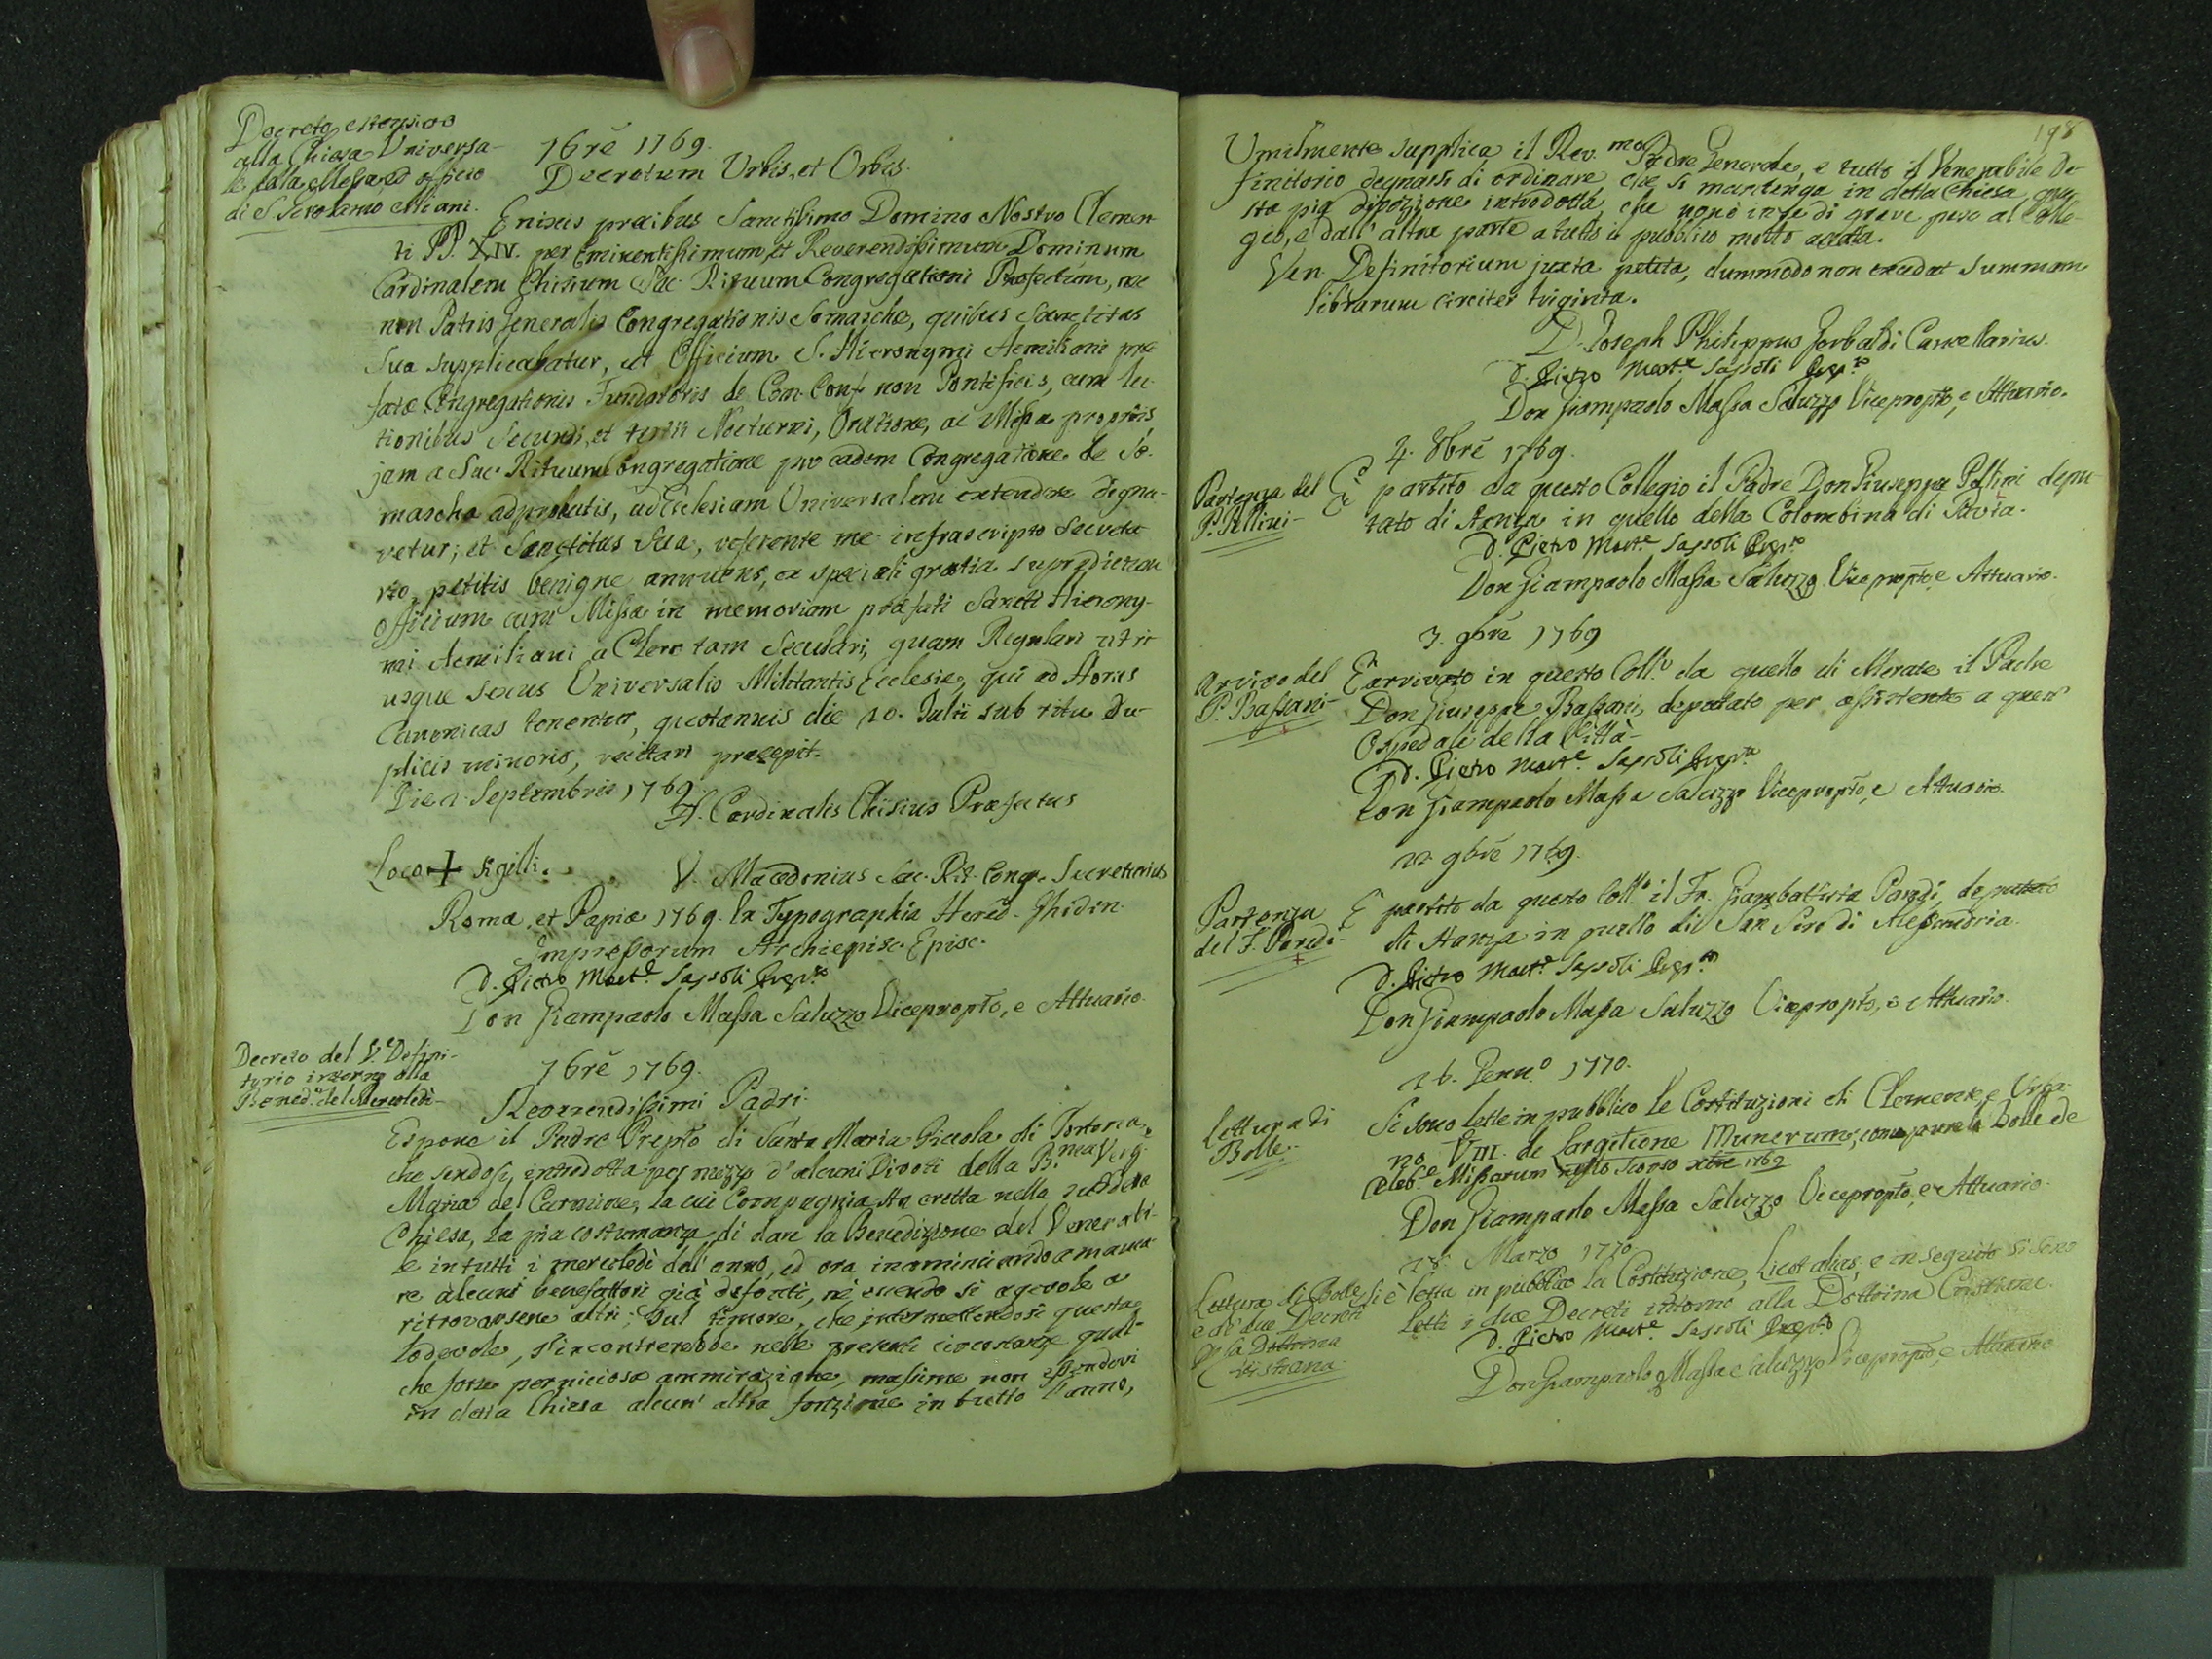 Decreto estensivo
alla Chiesa Universa-
le della Messa, ed officio
di S. Girolamo Miani.
7bre 1769.
Decretum Urbis, et Orbis.
Enixis precibus Sanctissimo Domino Nostro Clemen-
ti PP. XIV. per Eminentissimum, et Reverendissimum Dominum
Cardinalem Chisium Sac. Rituum Congregationi Prefectum, nec
non Patris Generalis Congregationis Somasche, quibus Sanctitas
Sua supplicabatur, ut Officium S. Hieronymi Aemiliani pre
fatae Congregationis Fundatoris de Com. Conf. non Pontificis, cum lec-
tionibus Secundi, et tertii Nocturni, Oratione, ac Missa propriis,
jam a Sac. Rituum Congregatione pro eadem Congregatione de So-
mascha adprobatis, ad Ecclesiam Universalem extendere digna-
retur; et Sanctitas Sua, referente me infrascripto Secreta
rio, petitis benigne annuens, ex speciali gratia supradictum
Officium cum Missa in memoriam praefati Sancti Hierony-
mi Aemiliani a Clero tam Seculari, quam Regulari utri
usque sexus Universalis Militantis Ecclesie, qui ad Horas
Canonicas tenentur, quotannis die 20. Julii sub ritu Du-
plicis minoris, recitari praecepit.
Die 2. Septembris 1769.
F. Cardinalis Chisius Praefectus
Loco + Sigilli.
V. Macedonius Sac. Rit. Cong. Secretarius
Romae, et Papiae 1769. Ex Typographia Hered. Ghidin.
Impressorum Archiepisc. Episc.
D. Pietro Mart.e Sassoli Prep.to
Don Giampaolo Massa Saluzzo Vicepropto, e Attuario.
Decreto del V.e Defini-
torio intorno alla
Bened.e del Mercoledì-
7bre 1769.
Reverendissimi Padri.
Espone il Padre Prepto di Santa Maria Piccola di Tortona,
che sendosi introdotta per mezzo d'alcuni Divoti della B.ma Verg.
Maria del Carmine, la cui Compagnia sta eretta nella suddetta
Chiesa, la pia costumanza di dare la Benedizione del Venerabi-
le in tutti i mercoledì dell'anno, ed ora incominciando a manca-
re alcuni benefattori già defonti, nè essendo sì agevole a
ritrovarsene altri; sul timore, che intermettendosi questa
lodevole, s'incontrerebbe nelle presenti circostanze qual-
che forse perniciosa ammirazione, massime non essendovi
in detta Chiesa alcun'altra fonzione in tutto l'anno,
198
Umilmente supplica il Rev.mo Padre Generale, e tutto il Venerabile De-
finitorio degnarsi di ordinare, che si mantenga in detta Chiesa que
sta pia divozione introdotta, che non è in se di grave peso al Colle-
gio, e dall'altra parte a tutto il pubblico molto accetta.
Ven. Definitorium juxta petita, dummodo non excedat summam
librarum circiter triginta.
D. Joseph Philippus Cancellarius.
D. Pietro Mart.e Sassoli Prep.to
Don Giampaolo Massa Saluzzo Vicepropto, e Attuario.
4. 8bre 1769.
Partenza del
P. Pellini-
È partito da questo Collegio il Padre Don Giuseppe Pellini depu-
tato di stanza in quello della Colombina di Pavia.
D. Pietro Mart.e Sassoli Prep.to
Don Giampaolo Massa Saluzzo Vicepropto, e Attuario.
3. 9bre 1769
Arrivo del
P. Bassani-
È arrivato in questo Coll.o da quello di Merate il Padre
Don Giuseppe Bassani, deputato per assistente a quest'
Ospedali della Città-
D. Pietro Mart.e Sassoli Prep.to
Don Giampaolo Massa Saluzzo Vicepropto, e Attuario.
22. 9bre 1769.
Partenza
del F. Parodi-
È partito da questo Coll.o il Fr. Giambattista Parodi, deputato
di stanza in quello di San Siro di Alessandria.
D. Pietro Mart.e Sassoli Prep.to
Don Giampaolo Massa Saluzzo Vicepropto, e Attuario.
26. Genn.o 1770.
Lettura di
Bolle.
Si sono lette in pubblico le Costituzioni di Clemente, e Urba-
no VIII. de Largitione Munerum, come pure le Bolle de
Celeb.e Missarum nello scorso xbre 1769
Don Giampaolo Massa Saluzzo Vicepropto, e Attuario.
28. Marzo 1770.
Lettura di Bolle
e di due Decreti
la Dottrina
Cristiana.
Si è letta in pubblico la Costituzione, Licet alias, e in seguito si sono
letti i due Decreti intorno alla Dottrina Cristiana.
D. Pietro Mart.e Sassoli Prep.to
Don Giampaolo Massa Saluzzo Vicepropto, e Attuario.